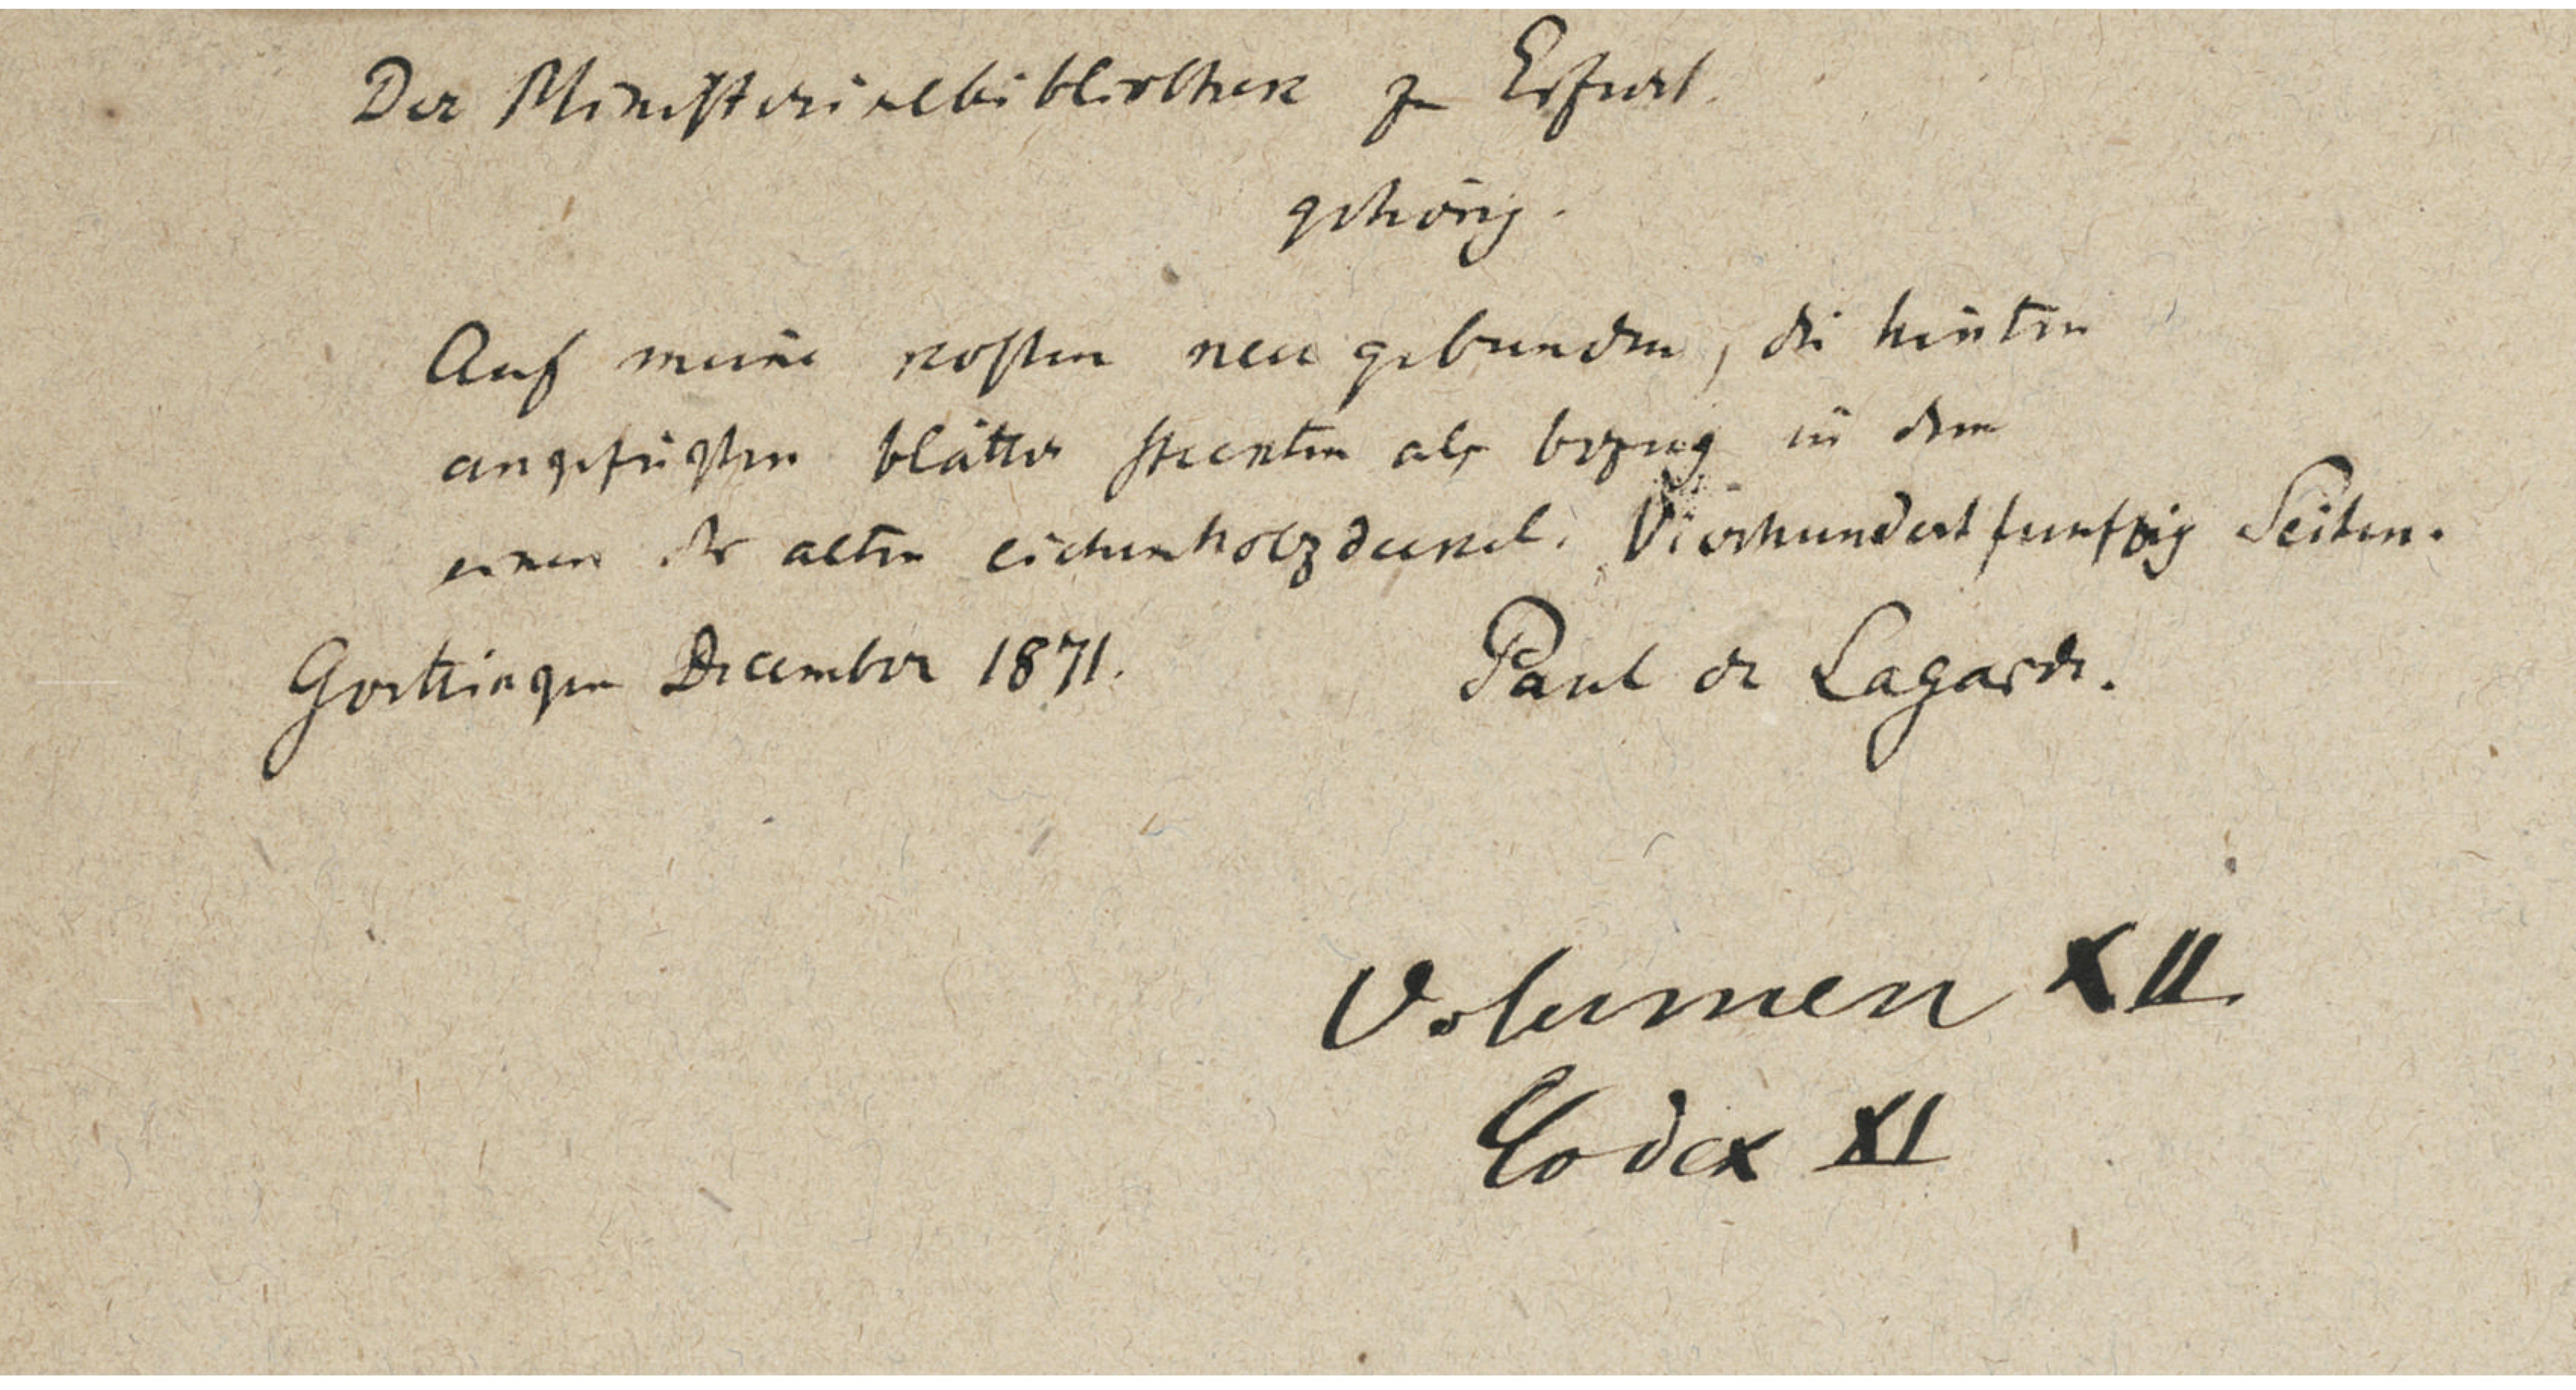 Der Ministerialbibliothek zu Erfurt
gehörig.
Auf meine kosten neu gebunden, die hinten
angefügten blätter steckten als bezug in dem
einen der alten eichenholzdeckel. Vierhundert funfzig Seiten.
Goettingen December 1871. Paul de Lagarde.
Volumen XII.
Codex XI